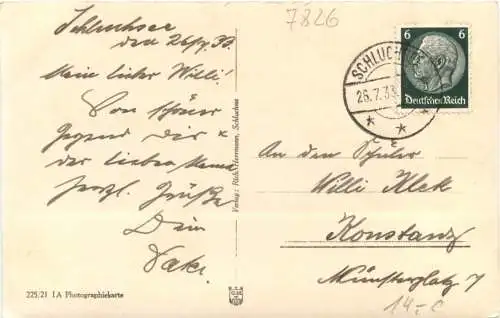 7826
Schluchsee
den 26/7. 33.
Mein lieber Willi!
Von schöner
Gegend Dir &
der lieben Mama
herzl. Grüße
Dein
Vater.
225/21 IA Photographiekarte
Verlag: Rich. Hermann, Schluchsee
SCHLUCH
26.7.33
6 6
Deutsches Reich
An den Schüler
Willi Kleck
Konstanz
Münsterplatz 7
14.-C